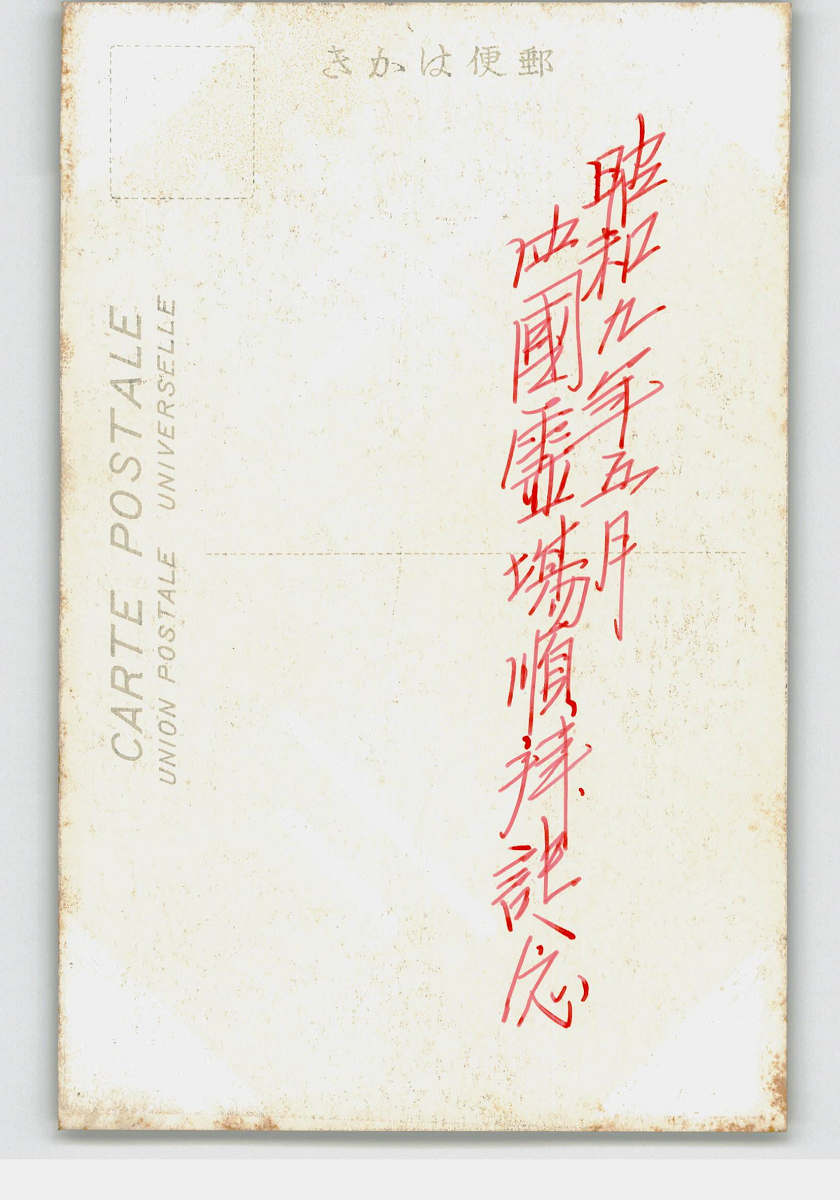 きかは便郵
昭和九年五月
四國霊場順拝記念
CARTE POSTALE
UNION POSTALE UNIVERSELLE